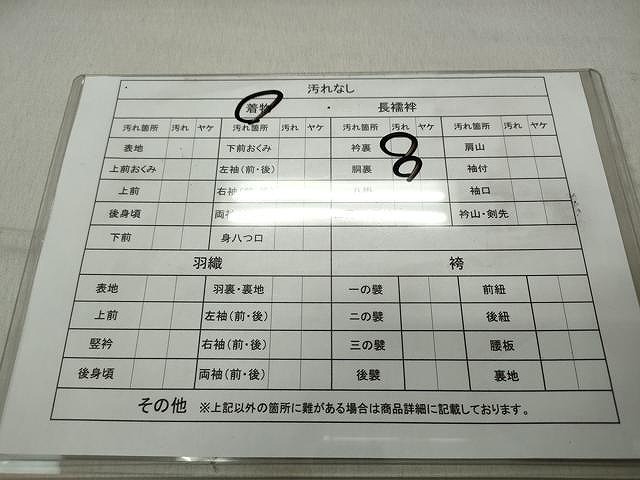 汚れなし
着物 ・ 長襦袢
汚れ箇所 汚れ ヤケ 汚れ箇所 汚れ ヤケ 汚れ箇所 汚れ ヤケ 汚れ箇所 汚れ ヤケ
表地 下前おくみ 衿裏 肩山
上前おくみ 左袖(前・後) 胴裏 袖付
上前 右袖(前・後) 袖口
後身頃 両袖 衿山・剣先
下前 身八つ口
羽織 袴
表地 羽裏・裏地 一の襞 前紐
上前 左袖(前・後) 二の襞 後紐
竪衿 右袖(前・後) 三の襞 腰板
後身頃 両袖(前・後) 後襞 裏地
その他 ※上記以外の箇所に難がある場合は商品詳細に記載しております。